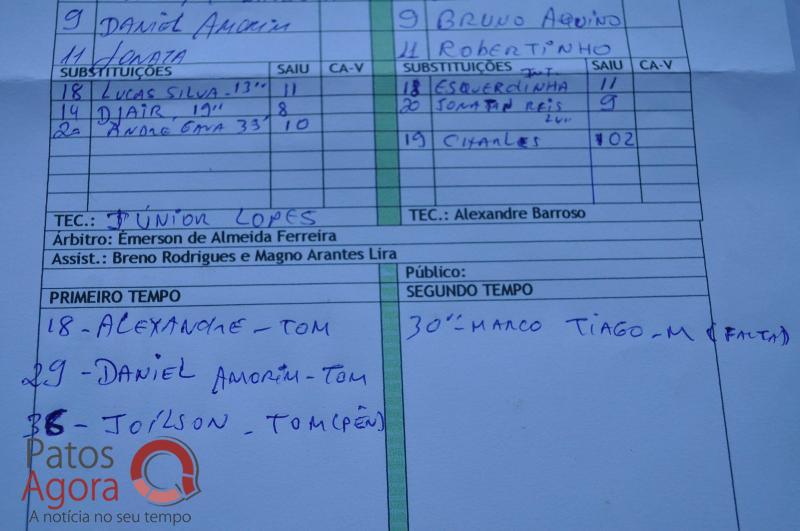 9 DANIEL AMORIM 9 BRUNO AQUINO
11 JONATA 11 ROBERTINHO
SUBSTITUIÇÕES SAIU CA-V SUBSTITUIÇÕES INT. SAIU CA-V
18 LUCAS SILVA - 13'' 11 18 ESQUERDINHA 11
14 DJAIR, 19'' 8 20 JONATAN REIS 9
20 ANDRE GAVA 33' 10
19 CHARLES 02
TEC.: JÚNIOR LOPES TEC.: Alexandre Barroso
Árbitro: Émerson de Almeida Ferreira
Assist.: Breno Rodrigues e Magno Arantes Lira
Público:
PRIMEIRO TEMPO SEGUNDO TEMPO
18 - ALEXANDRE - TOM 30'' - MARCO TIAGO - M (FALTA)
29 - DANIEL AMORIM - TOM
36 - JOÍLSON - TOM (PÊN)
Patos
Agora
A notícia no seu tempo